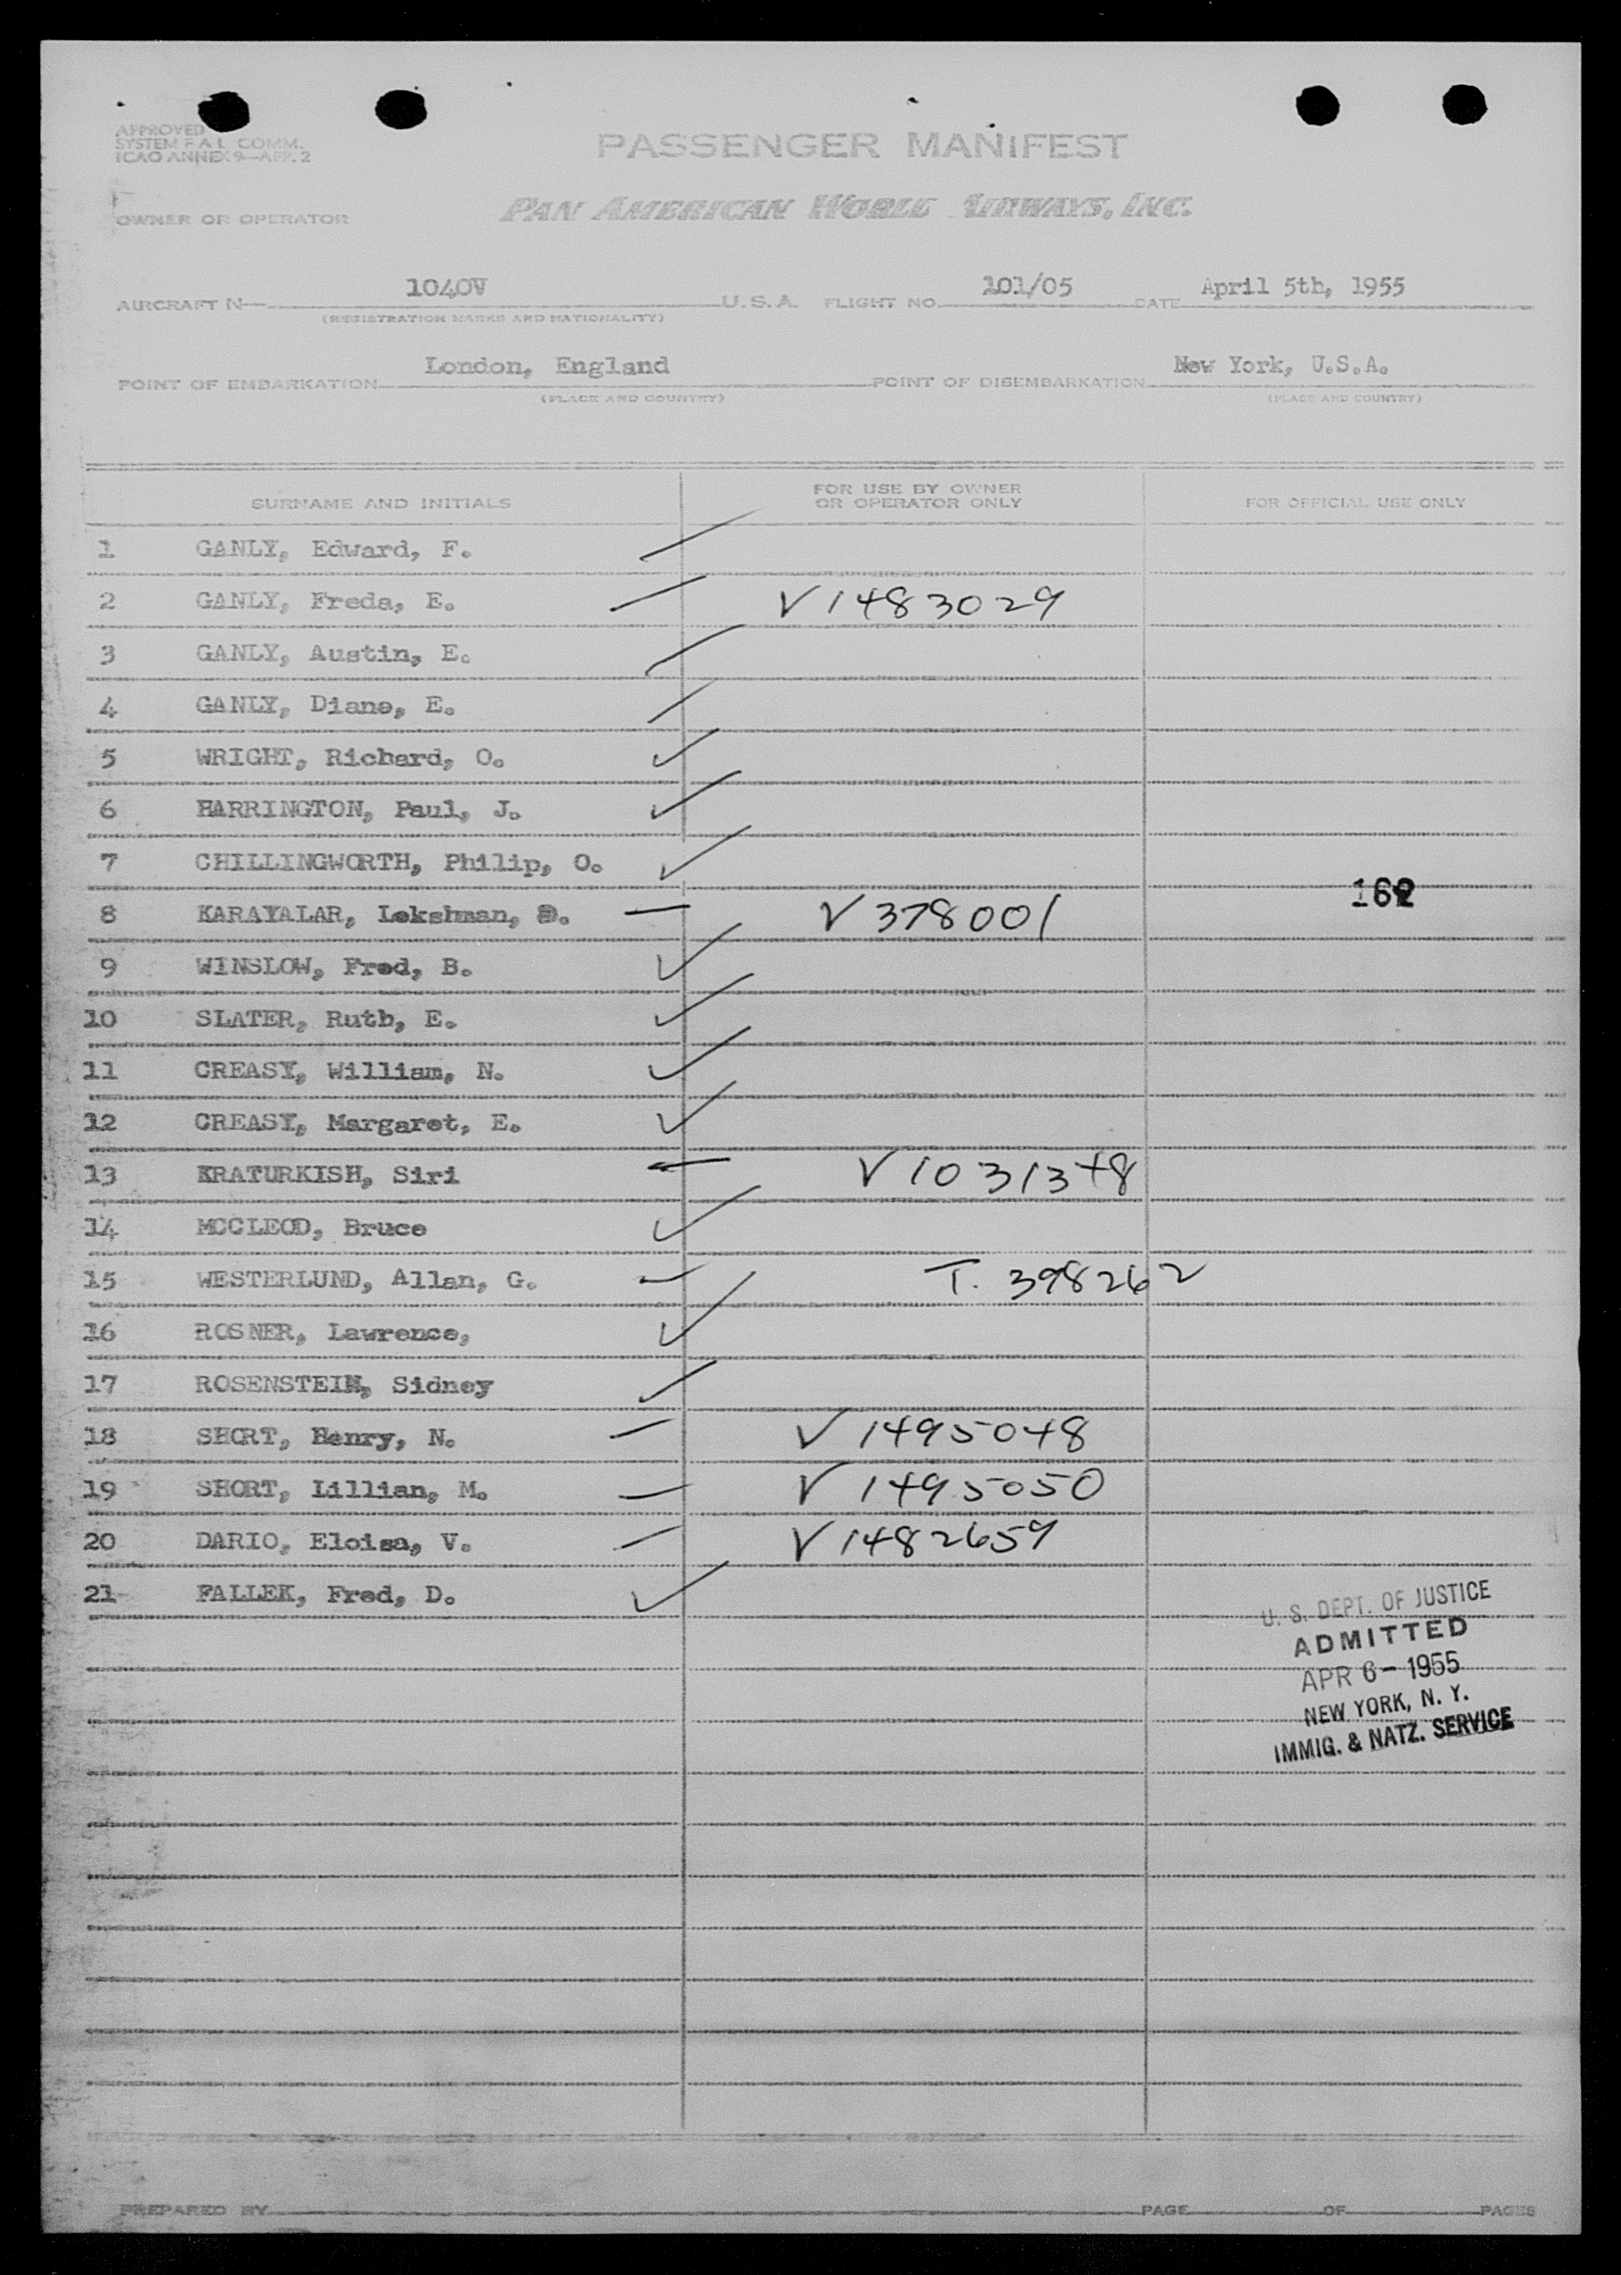 APPROVED
SYSTEM F A L COMM.
ICAO ANNEX 9—APP. 2
PASSENGER MANIFEST
OWNER OR OPERATOR
PAN AMERICAN WORLD AIRWAYS, INC.
AIRCRAFT N— 1040V U.S.A. FLIGHT NO. 101/05 DATE April 5th, 1955
(REGISTRATION MARKS AND NATIONALITY)
POINT OF EMBARKATION London, England POINT OF DISEMBARKATION New York, U.S.A.
(PLACE AND COUNTRY) (PLACE AND COUNTRY)
SURNAME AND INITIALS FOR USE BY OWNER OR OPERATOR ONLY FOR OFFICIAL USE ONLY
1 GANLY, Edward, F.
2 GANLY, Freda, E. V 1483029
3 GANLY, Austin, E.
4 GANLY, Diane, E.
5 WRIGHT, Richard, O.
6 HARRINGTON, Paul, J.
7 CHILLINGWORTH, Philip, O.
8 KARAYALAR, Lekshman, V 378001 162
9 WINSLOW, Fred, B.
10 SLATER, Ruth, E.
11 CREASY, William, N.
12 CREASY, Margaret, E.
13 KRATURKISH, Siri V 1031348
14 MCCLEOD, Bruce
15 WESTERLUND, Allan, G. T. 398262
16 ROSNER, Lawrence,
17 ROSENSTEIN, Sidney
18 SHORT, Henry, N. V 1495048
19 SHORT, Lillian, M. V 1495050
20 DARIO, Eloisa, V. V 1482659
21 FALLEK, Fred, D.
U. S. DEPT. OF JUSTICE
ADMITTED
APR 6 - 1955
NEW YORK, N. Y.
IMMIG. & NATZ. SERVICE
PREPARED BY PAGE OF PAGES